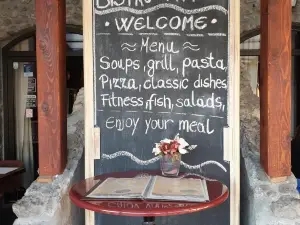 BISTRO
• WELCOME •
≈ Menu ≈
Soups, grill, pasta,
Pizza, classic dishes
Fitness, fish, salads,
Enjoy your meal